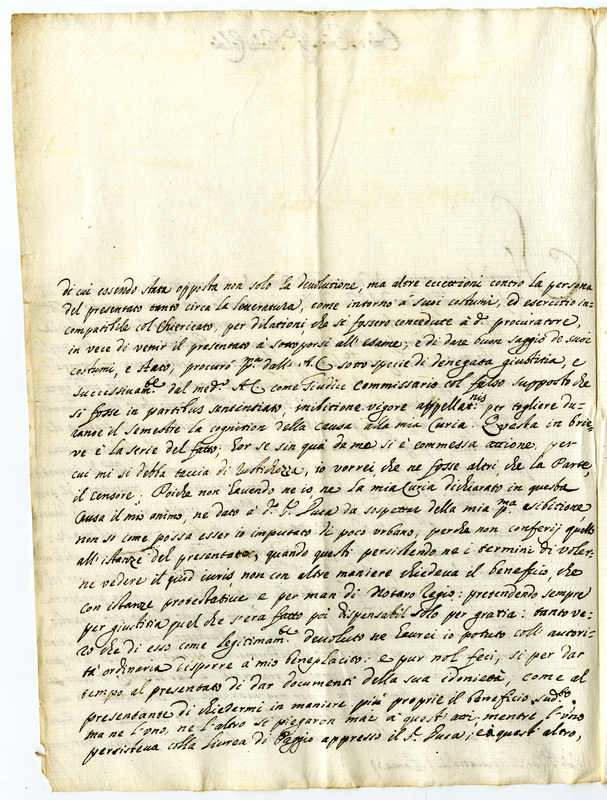 di cui essendo stata opposta non solo la devolutione, ma altre eccettioni contro la persona
del presentato tanto circa la letteratura, come intorno à suoi costumi, ed esercitio in-
compatibile col Chiericato, per dilationi, che si fossero concedute à d.º procuratore,
in vece di venir il presentato à sottoporsi all'esame, e di dare buon saggio de suoi
costumi, e stato, procurò p.ma dall'A.C. sotto specie di denegata giustitia, e
successivam.te dal med.º A.C. come Giudice Commissario col falso supposto che
si fosse in partibus sentenziato, inibitione vigore appellat.nis per togliere du-
rante il semestre la cognition della causa alla mia Curia. Questa in brie-
ve è la serie del fatto; Hor se sin quà da me si è commessa attione, per
cui mi si debba taccia di rustichezza, io vorrei che ne fosse altri, che la Parte,
il censore; Poiche non havendo ne io ne la mia Curia dichiarato in questa
Causa il mio animo, ne dato à d.º S.r Duca da sospettar della mia p.ma esibitione
non so come possa esser io imputato di poco urbano, perche non conferij quello
all'istanze del presentato, quando questi persistendo ne i termini di voler-
ne vedere il quid iuris, non con altre maniere chiedeva il beneficio, che
con istanze protestative e per man di Notaro Regio: pretendendo sempre
per giustitia quel che s'era fatto poi dispensabil solo per gratia: tanto ve-
ro che di esso come legitimam.te devoluto ne haurei io potuto coll'autori-
tà ordinaria disporre à mio beneplacito: e pur nol feci, sì per dar
tempo al presentato di dar documenti della sua idoneità, come al
presentante di chiedermi in maniere più proprie il beneficio sud.to,
ma ne l'uno, ne l'altro si piegaron mai à questi atti, mentre l'uno
persisteva colla livrea di Paggio appresso il S.r Duca; e à quest'altro,